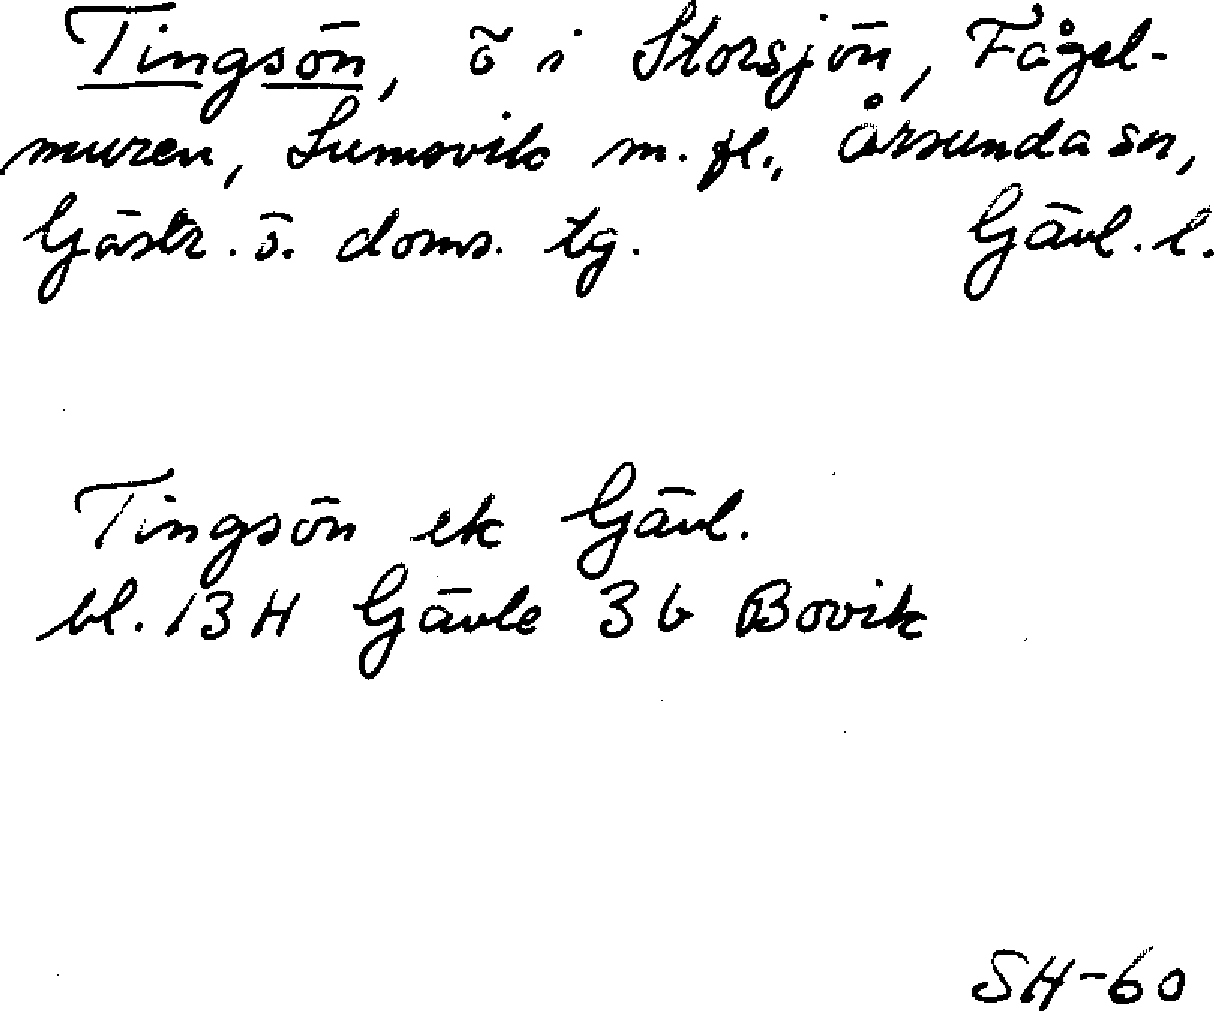 Tingsön, ö i Storsjön, Fågel-
muren, Sumsvik m. fl., Årsunda sn,
Gästr. ö. doms. tg. Gävl. l.
Tingsön ek Gävl.
bl. 13 H Gävle 3 b Bovik
SH-60